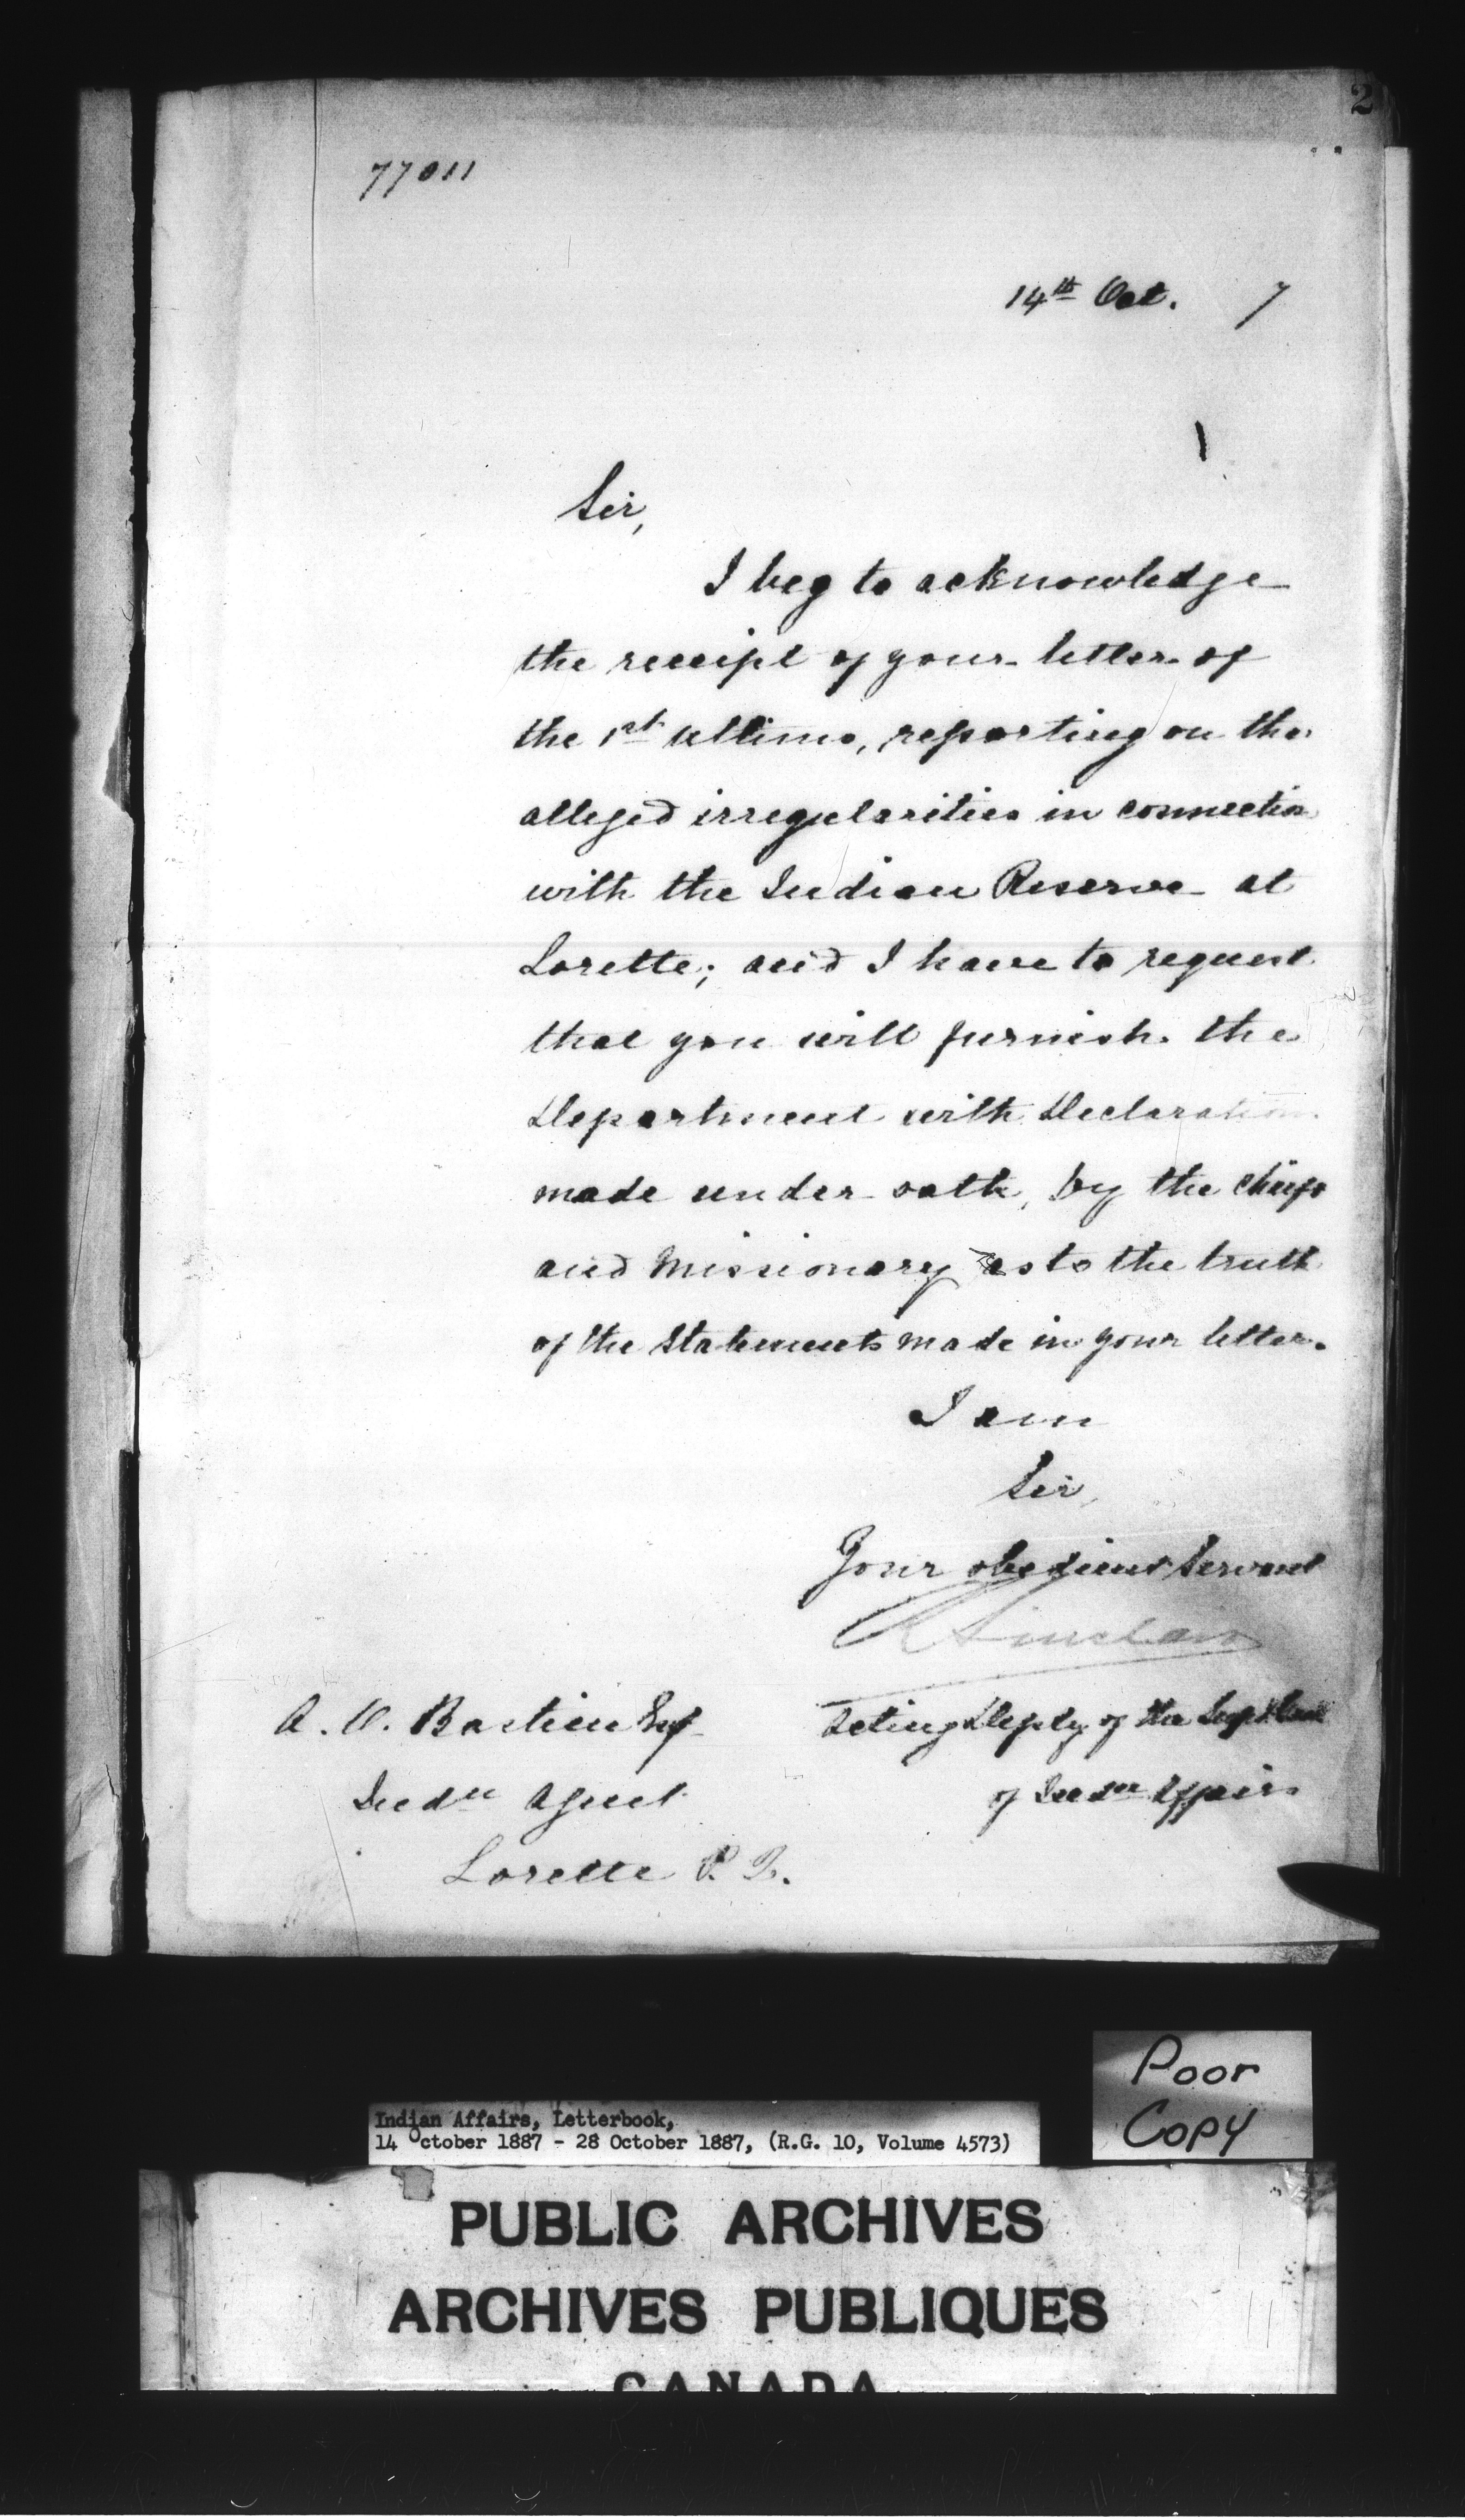 2
77011
14th Oct. 7
Sir,
I beg to acknowledge
the receipt of your letter of
the 1st ultimo, reporting on the
alleged irregularities in connection
with the Indian Reserve at
Lorette; and I have to request
that you will furnish the
Department with Declaration
made under oath, by the Chiefs
and Missionary as to the truth
of the statements made in your letter.
I am
Sir,
Your obedient Servant
R Sinclair
A. O. Bastien Esq
Acting Depty of the Supt Genl
Indn Agent
of Indn Affairs
Lorette P. Q.
Poor
Copy
Indian Affairs, Letterbook,
14 October 1887 - 28 October 1887, (R.G. 10, Volume 4573)
PUBLIC ARCHIVES
ARCHIVES PUBLIQUES
CANADA